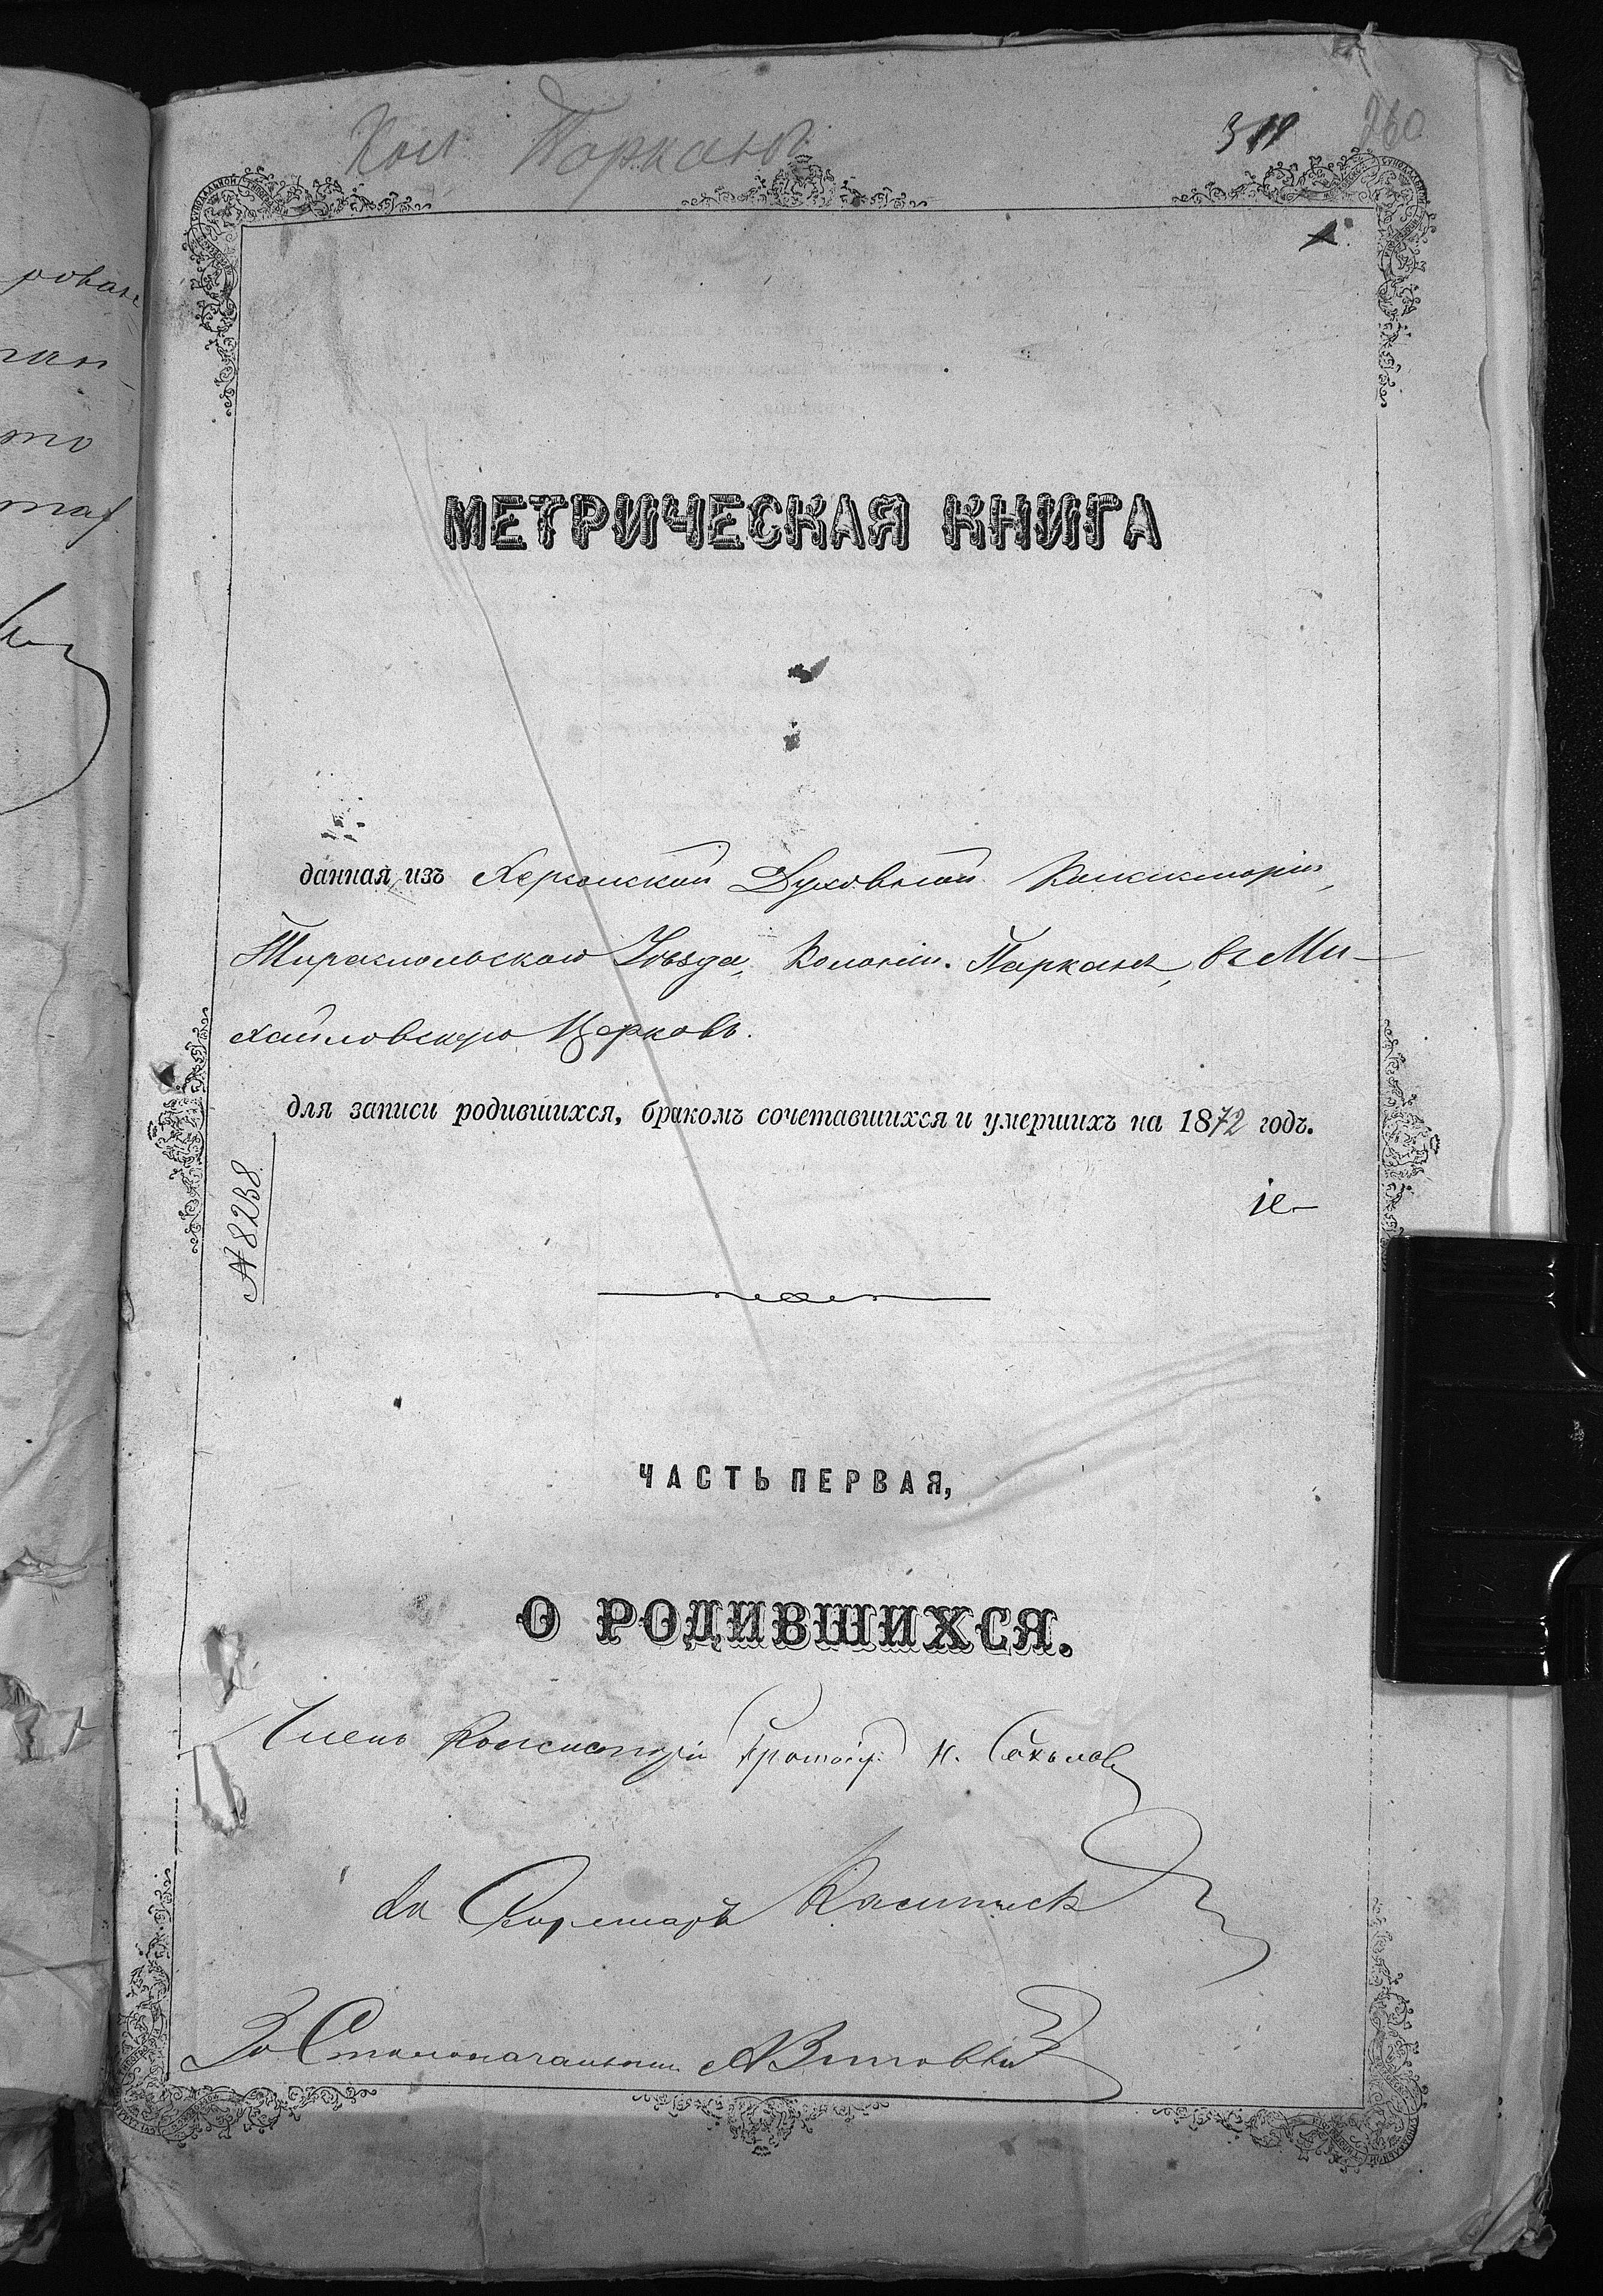 Кол Парканы
311 260
МЕТРИЧЕСКАЯ КНИГА
данная изъ Херсонской Духовной Консисторіи,
Тираспольскаго Уѣзда, Колоніи Парканъ, въ Ми-
хайловскую Церковь.
для записи родившихся, бракомъ сочетавшихся и умершихъ на 1872 годъ.
№ 8238
ЧАСТЬ ПЕРВАЯ,
О РОДИВШИХСЯ.
Членъ Консисторіи Протоіер: Н. Соколовъ
За Секретаръ
За Столоначальника